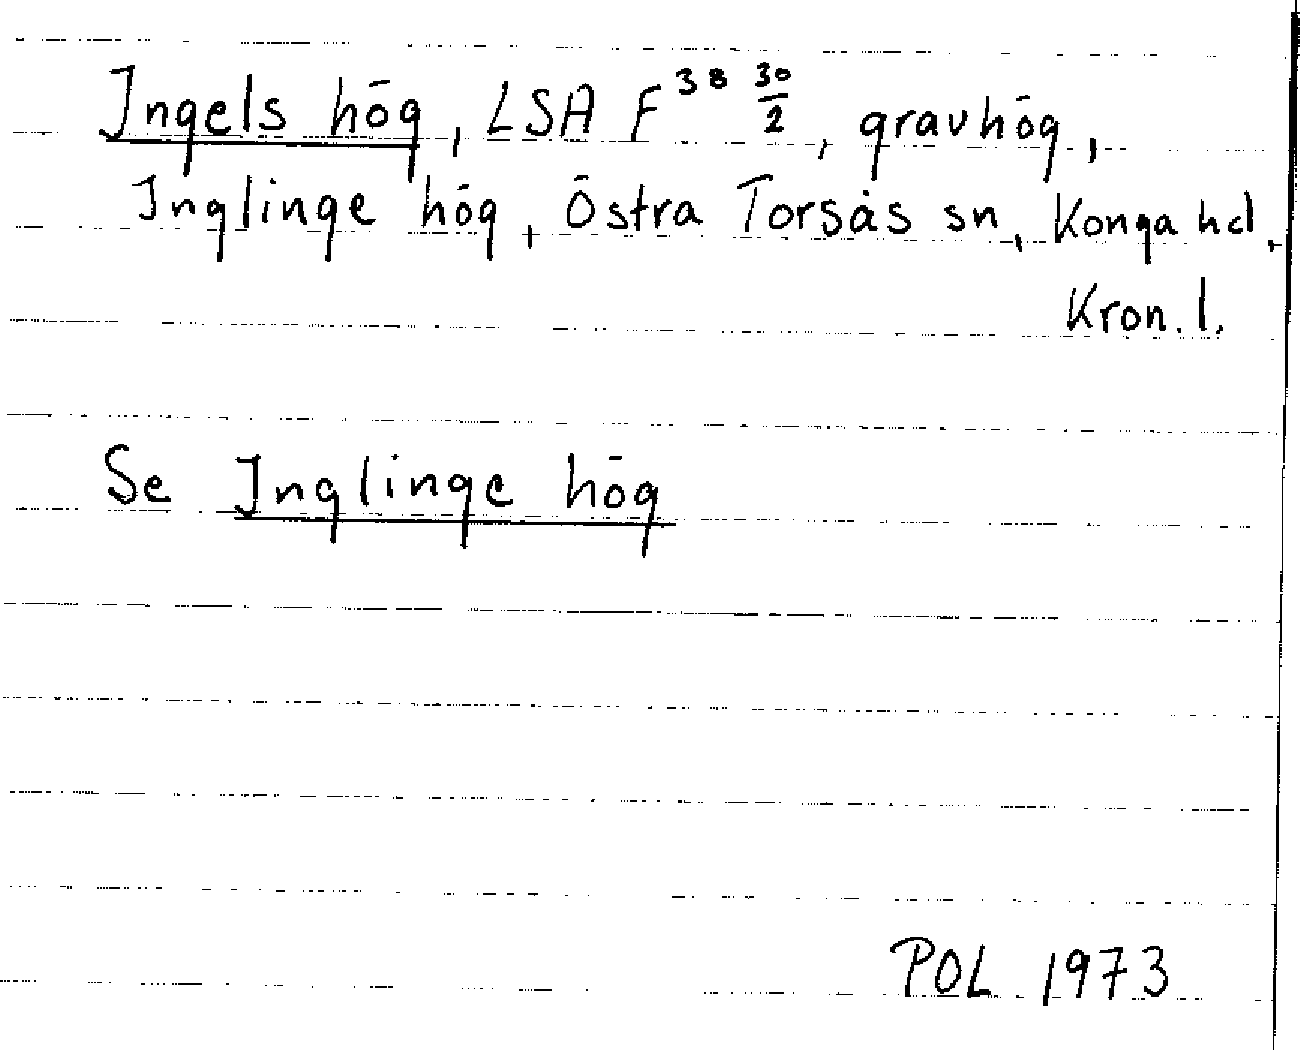 Ingels hög, LSA F 38 30/2, gravhög,
Inglinge hög, Östra Torsås sn, Konga hd,
Kron. l.
Se Inglinge hög
POL 1973